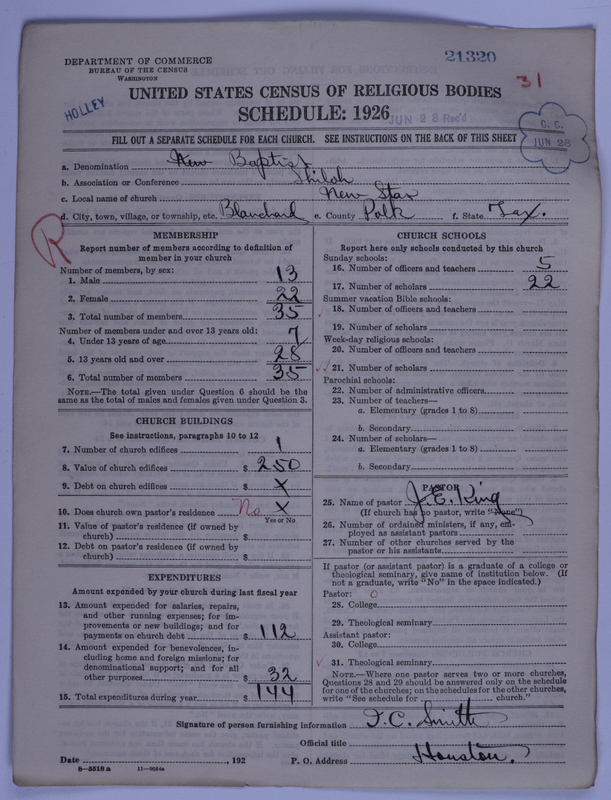 DEPARTMENT OF COMMERCE
BUREAU OF THE CENSUS
WASHINGTON
21320
31
HOLLEY
UNITED STATES CENSUS OF RELIGIOUS BODIES
SCHEDULE: 1926
JUN 28 Rec'd
C. C.
JUN 28
FILL OUT A SEPARATE SCHEDULE FOR EACH CHURCH. SEE INSTRUCTIONS ON THE BACK OF THIS SHEET
a. Denomination New Baptist
b. Association or Conference Shiloh
c. Local name of church New Star
d. City, town, village, or township, etc. Blanchard e. County Polk f. State Tax.
R
MEMBERSHIP
Report number of members according to definition of
member in your church
Number of members, by sex:
1. Male 13
2. Female 22
3. Total number of members 35
Number of members under and over 13 years old:
4. Under 13 years of age 7
5. 13 years old and over 28
6. Total number of members 35
NOTE.—The total given under Question 6 should be the
same as the total of males and females given under Question 3.
CHURCH BUILDINGS
See instructions, paragraphs 10 to 12
7. Number of church edifices 1
8. Value of church edifices $ 250
9. Debt on church edifices $ X
10. Does church own pastor's residence No X
Yes or No
11. Value of pastor's residence (if owned by
church) $
12. Debt on pastor's residence (if owned by
church) $
EXPENDITURES
Amount expended by your church during last fiscal year
13. Amount expended for salaries, repairs,
and other running expenses; for im-
provements or new buildings; and for
payments on church debt $ 112
14. Amount expended for benevolences, in-
cluding home and foreign missions; for
denominational support; and for all
other purposes $ 32
15. Total expenditures during year $ 144
CHURCH SCHOOLS
Report here only schools conducted by this church
Sunday schools:
16. Number of officers and teachers 5
17. Number of scholars 22
Summer vacation Bible schools:
18. Number of officers and teachers
19. Number of scholars
Week-day religious schools:
20. Number of officers and teachers
21. Number of scholars
Parochial schools:
22. Number of administrative officers
23. Number of teachers—
a. Elementary (grades 1 to 8)
b. Secondary
24. Number of scholars—
a. Elementary (grades 1 to 8)
b. Secondary
PASTOR
25. Name of pastor J. E. King
(If church has no pastor, write "None")
26. Number of ordained ministers, if any, em-
ployed as assistant pastors
27. Number of other churches served by the
pastor or his assistants
If pastor (or assistant pastor) is a graduate of a college or
theological seminary, give name of institution below. (If
not a graduate, write "No" in the space indicated.)
Pastor: 0
28. College
29. Theological seminary
Assistant pastor:
30. College
31. Theological seminary
NOTE.—Where one pastor serves two or more churches,
Questions 28 and 29 should be answered only on the schedule
for one of the churches; on the schedules for the other churches,
write "See schedule for church."
Signature of person furnishing information J. C. Smith
Official title
Date , 192 P. O. Address Houston.
8—5518a 11—9054a